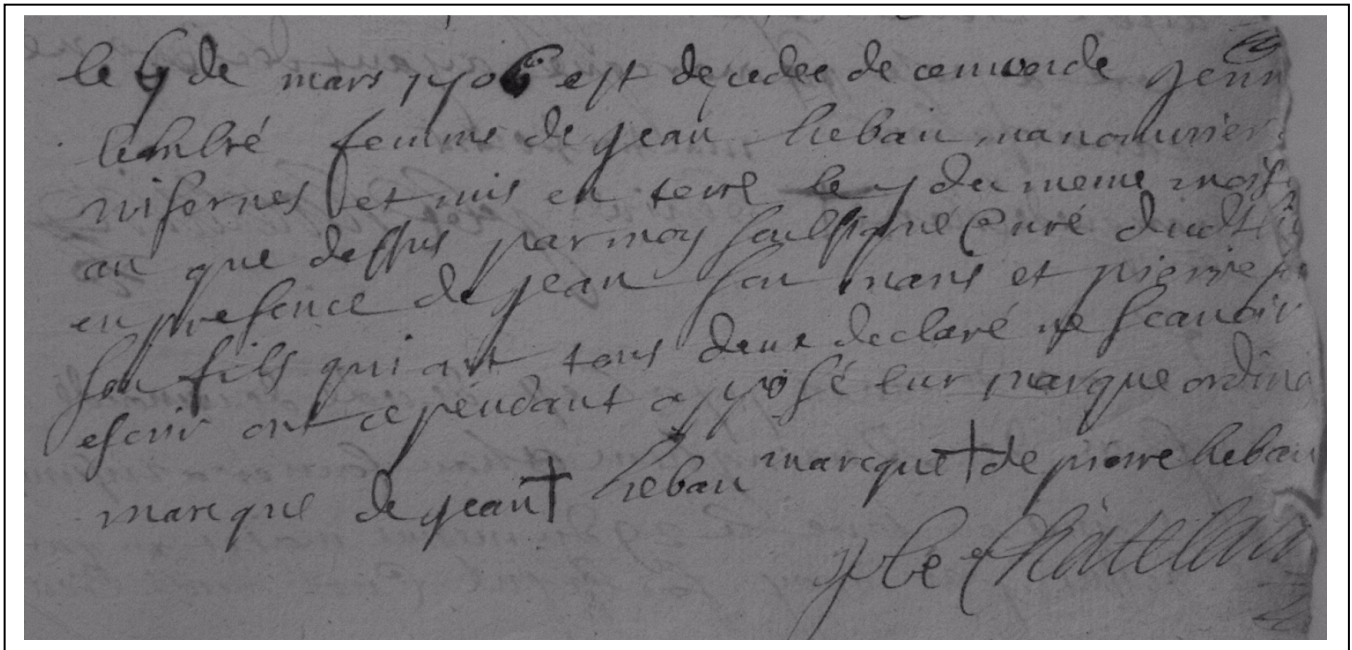 le 6 de mars 1706 est decedee de ce monde Jenn
femme de jean hebau manouvrier
nisernes et mis en terre le 7 du meme mois
an que dessus par moy soussigne Curé dudt
en presence de jean son maris et pierre
son fils qui ont tous deux declaré ne scauoir
escrir ont cependant apposé leur marque ordina
marque de jean † hebau marque † de pierre hebau
J le Châtelain